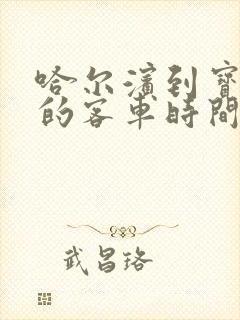 哈尔濱到寶
的客車時間
武昌珞